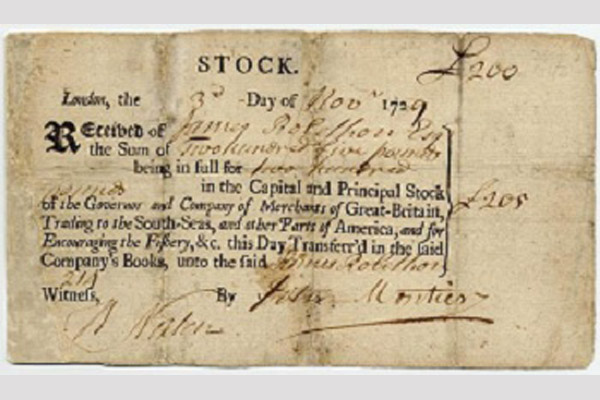 STOCK.
£200
London, the 3d Day of Novr 1729
REceived of James Robethon Esq
the Sum of two hundred five pounds
being in full for two hundred
pounds in the Capital and Principal Stock
of the Governor and Company of Merchants of Great-Britain,
£205
Trading to the South-Seas, and other Parts of America, and for
Encouraging the Fishery, &c. this Day Transferr'd in the said
Company's Books, unto the said James Robethon
Witness, By